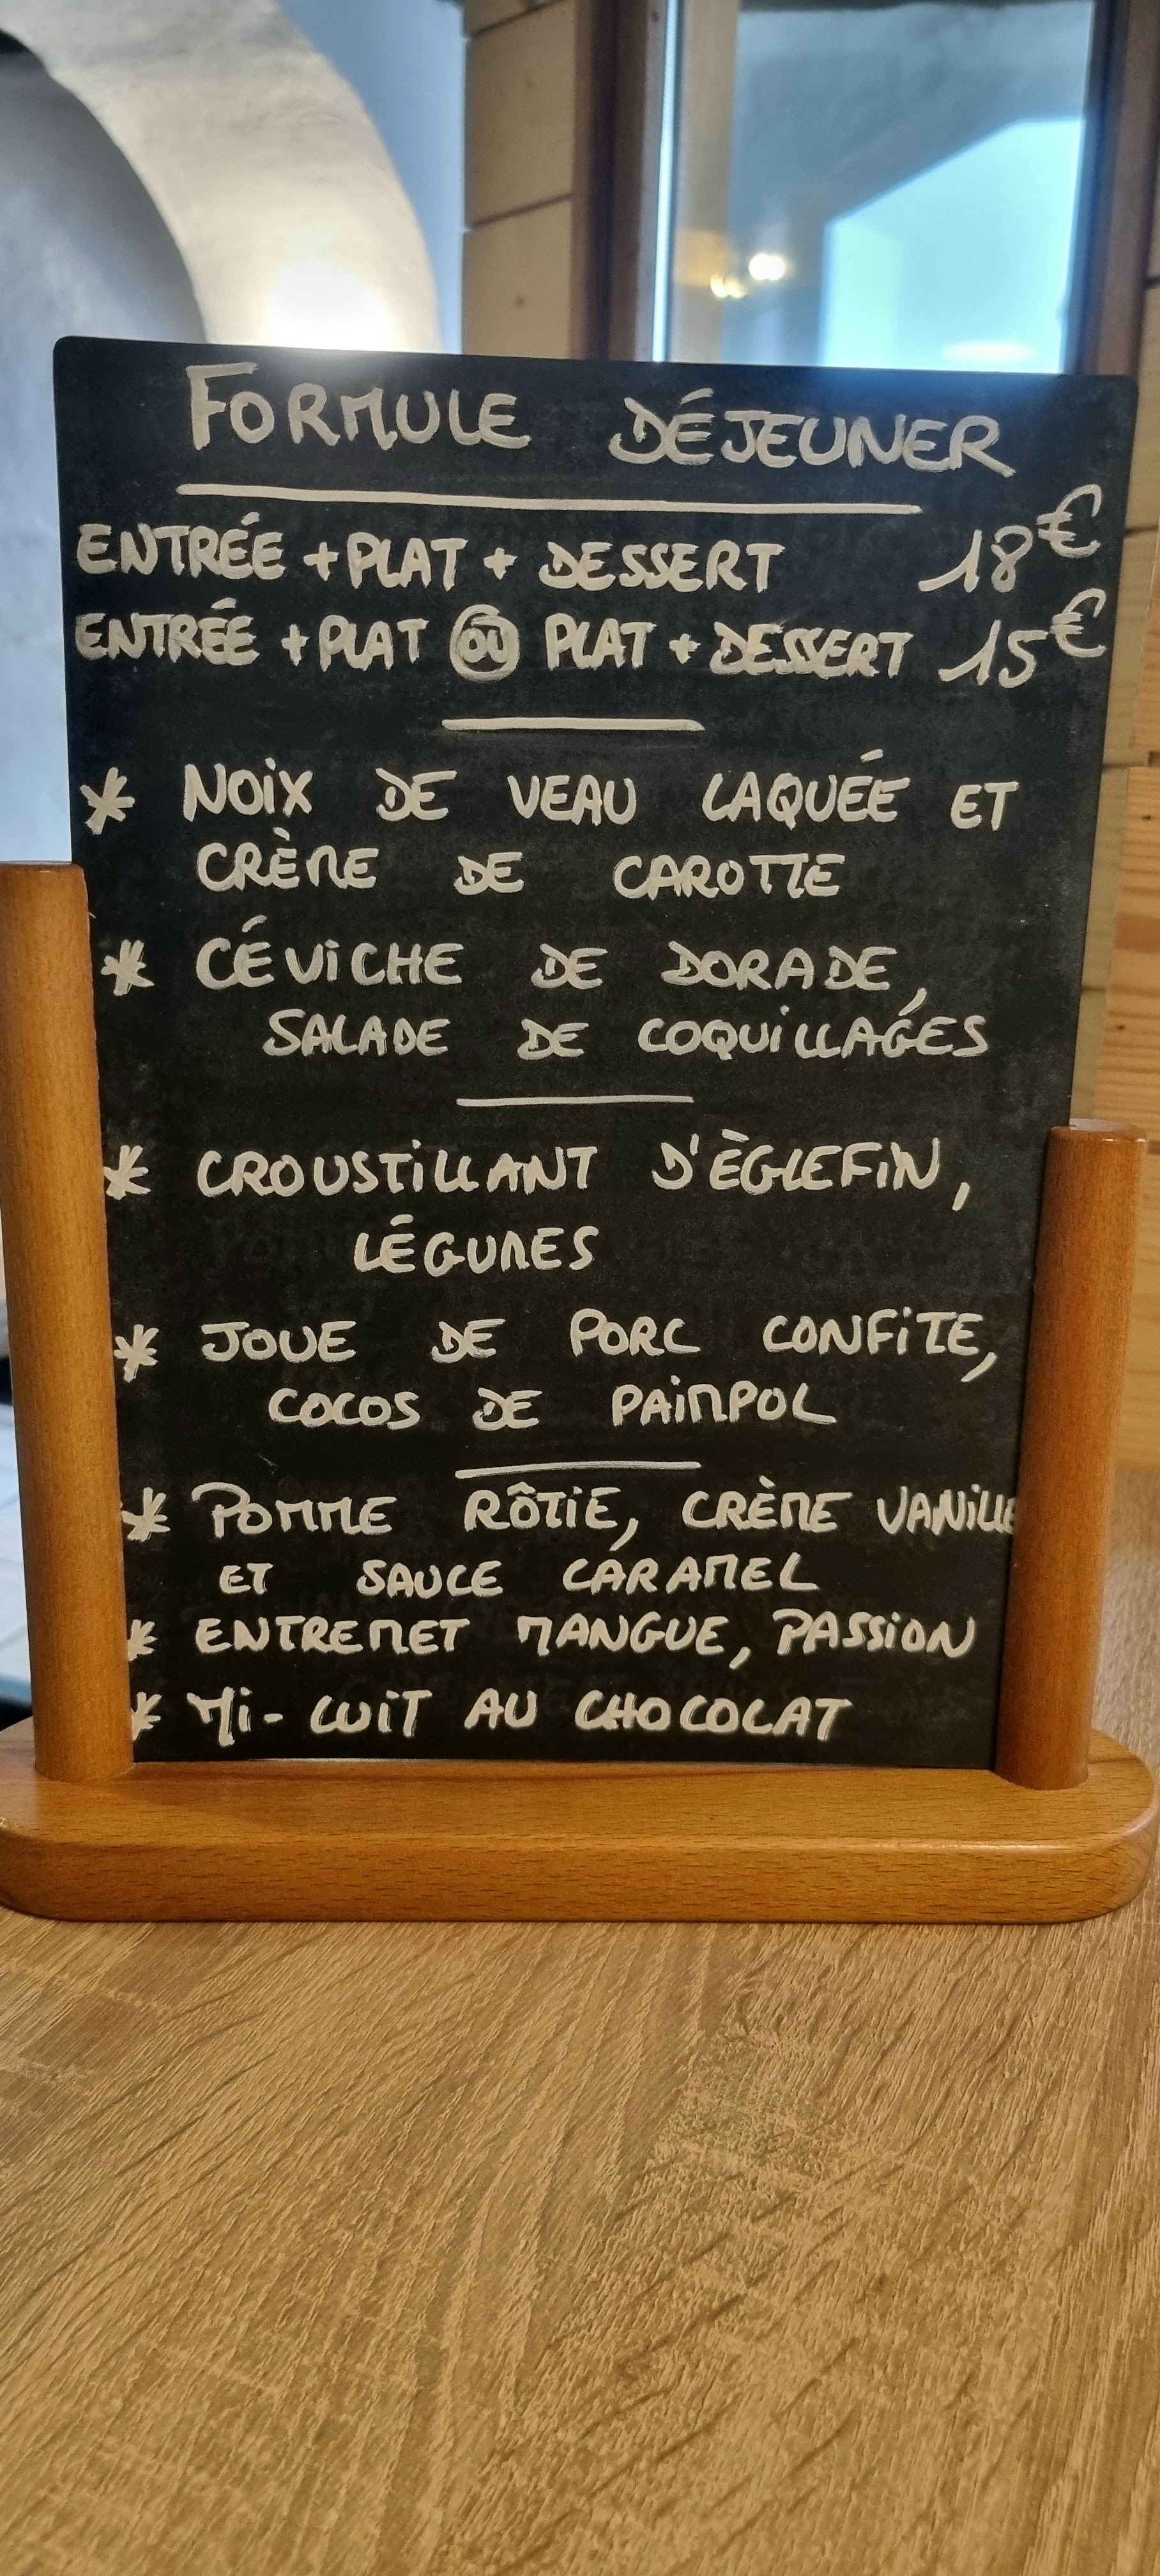 FORMULE DÉJEUNER
ENTRÉE + PLAT + DESSERT 18€
ENTRÉE + PLAT OU PLAT + DESSERT 15€
* NOIX DE VEAU LAQUÉE ET
CRÈME DE CAROTTE
* CÉVICHE DE DORADE,
SALADE DE COQUILLAGES
* CROUSTILLANT D'ÈGLEFIN,
LÉGUMES
* JOUE DE PORC CONFITE,
COCOS DE PAIMPOL
* POMME RÔTIE, CRÈME VANILLE
ET SAUCE CARAMEL
* ENTREMET MANGUE, PASSION
* MI-CUIT AU CHOCOLAT